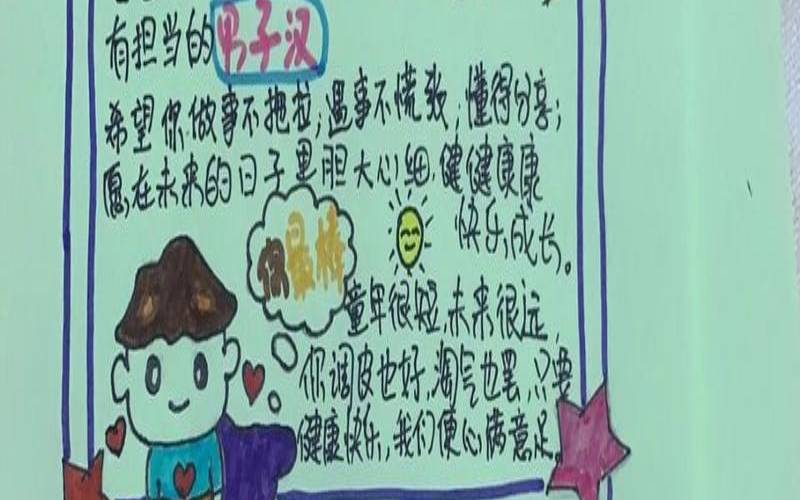 有担当的男子汉
希望你做事不拖拉;遇事不慌张;懂得分享;
愿在未来的日子里胆大心细,健健康康
快乐,成长。
你最棒
童年很短,未来很远,
你调皮也好,淘气也罢,只要
健康快乐,我们便心满意足。